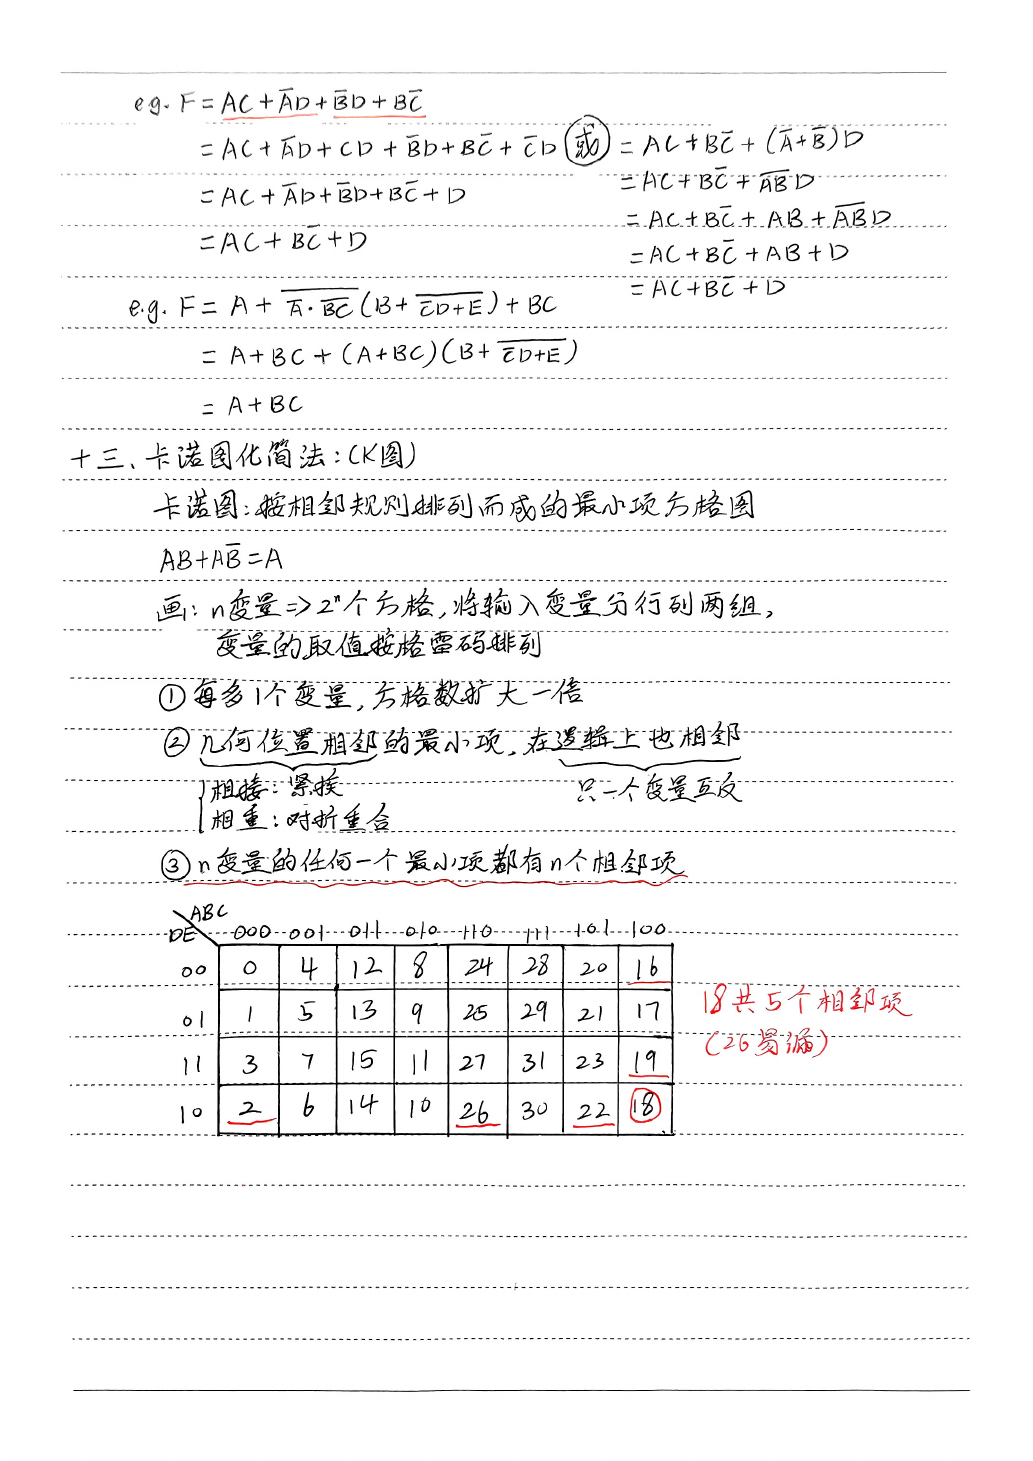 e.g. F = AC + A̅D + B̅D + BC̅
= AC + A̅D + CD + B̅D + BC̅ + C̅D 或 = AC + BC̅ + (A̅+B̅)D
= AC + A̅D + B̅D + BC̅ + D = AC + BC̅ + A̅B̅ D
= AC + BC̅ + D = AC + BC̅ + AB + A̅B̅ D
= AC + BC̅ + AB + D
= AC + BC̅ + D
e.g. F = A + \overline{A̅·\overline{BC}}(B + \overline{C̅D+E}) + BC
= A + BC + (A+BC)(B + \overline{C̅D+E})
= A + BC
十三、卡诺图化简法:(K图)
卡诺图:按相邻规则排列而成的最小项方格图
AB+AB̅=A
画: n变量=>2ⁿ个方格,将输入变量分行列两组,
变量的取值按格雷码排列
①每多1个变量,方格数扩大一倍
②几何位置相邻的最小项,在逻辑上也相邻
相接:紧挨 只一个变量互反
相重:对折重合
③n变量的任何一个最小项都有n个相邻项
ABC
DE 000 001 011 010 110 111 101 100
00 0 4 12 8 24 28 20 16
01 1 5 13 9 25 29 21 17
11 3 7 15 11 27 31 23 19
10 2 6 14 10 26 30 22 18
18共5个相邻项
(26易漏)